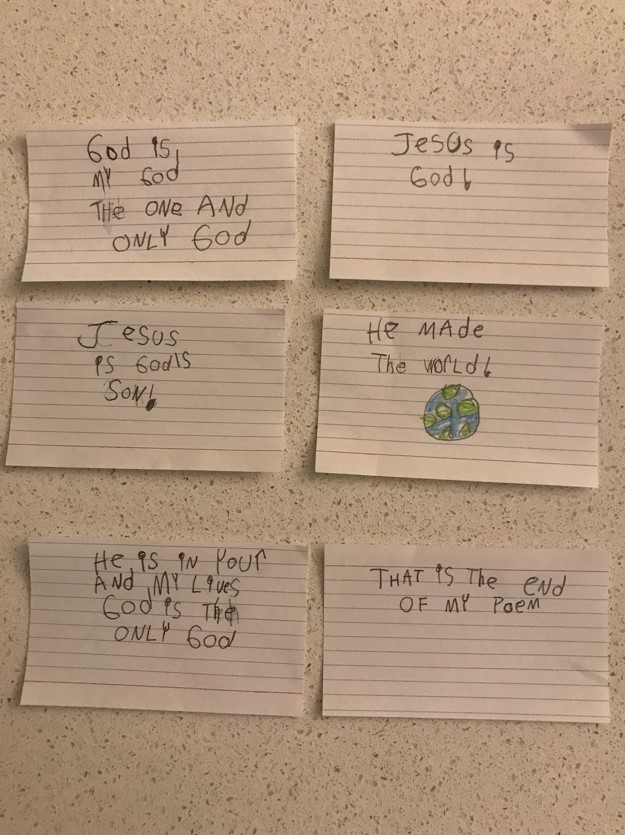 God is
MY God
THe ONe ANd
ONLY GOd
JesUs is
God!
Jesus
is GodIS
SON!
He MAde
The WORLd!
He is iN YOUr
ANd MY Lives
GOd is The
ONLY GOd
THAT is The eNd
OF MY POeM